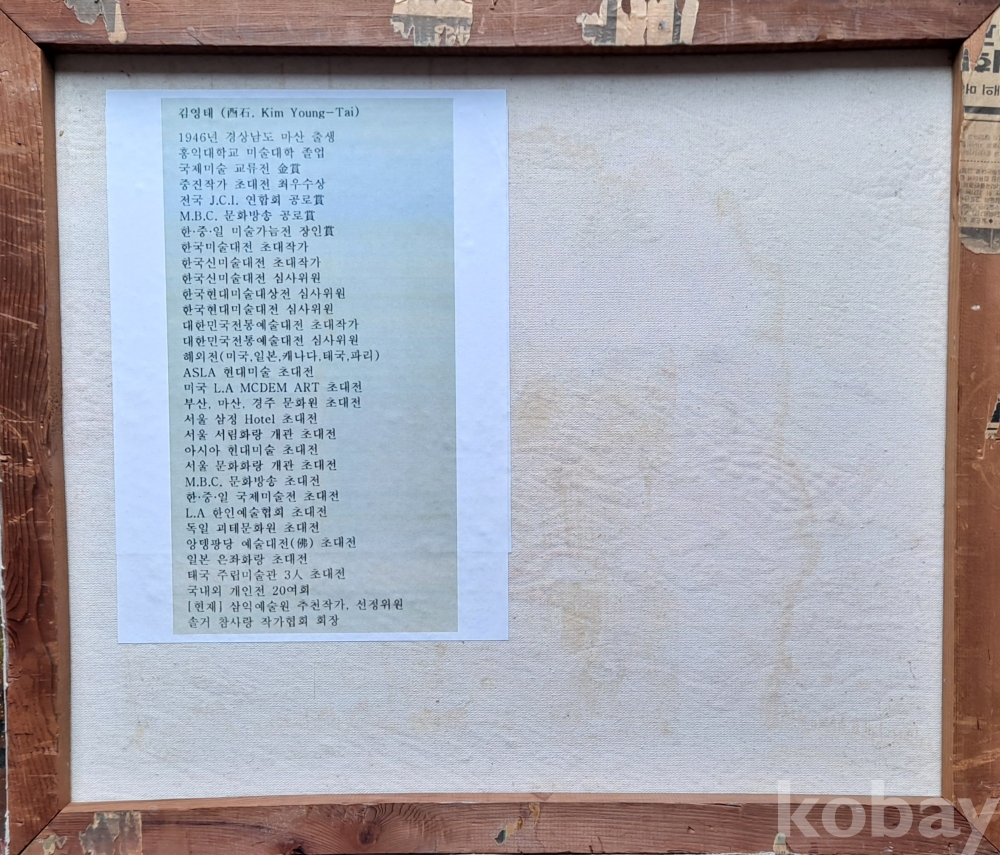 김영태 (酉石, Kim Young-Tai)
1946년 경상남도 마산 출생
홍익대학교 미술대학 졸업
국제미술 교류전 金賞
중진작가 초대전 최우수상
전국 J.C.I. 연합회 공로賞
M.B.C. 문화방송 공로賞
한·중·일 미술가늠전 장인賞
한국미술대전 초대작가
한국신미술대전 초대작가
한국신미술대전 심사위원
한국현대미술대상전 심사위원
한국현대미술대전 심사위원
대한민국전통예술대전 초대작가
대한민국전통예술대전 심사위원
해외전(미국,일본,캐나다,태국,파리)
ASLA 현대미술 초대전
미국 L.A MCDEM ART 초대전
부산, 마산, 경주 문화원 초대전
서울 삼정 Hotel 초대전
서울 서림화랑 개관 초대전
아시아 현대미술 초대전
서울 문화화랑 개관 초대전
M.B.C. 문화방송 초대전
한·중·일 국제미술전 초대전
L.A 한인예술협회 초대전
독일 괴테문화원 초대전
앙뎅팡당 예술대전(佛) 초대전
일본 은좌화랑 초대전
태국 주립미술관 3人 초대전
국내외 개인전 20여회
[현재] 삼익예술원 추천작가, 선정위원
솔거 참사랑 작가협회 회장
kobay